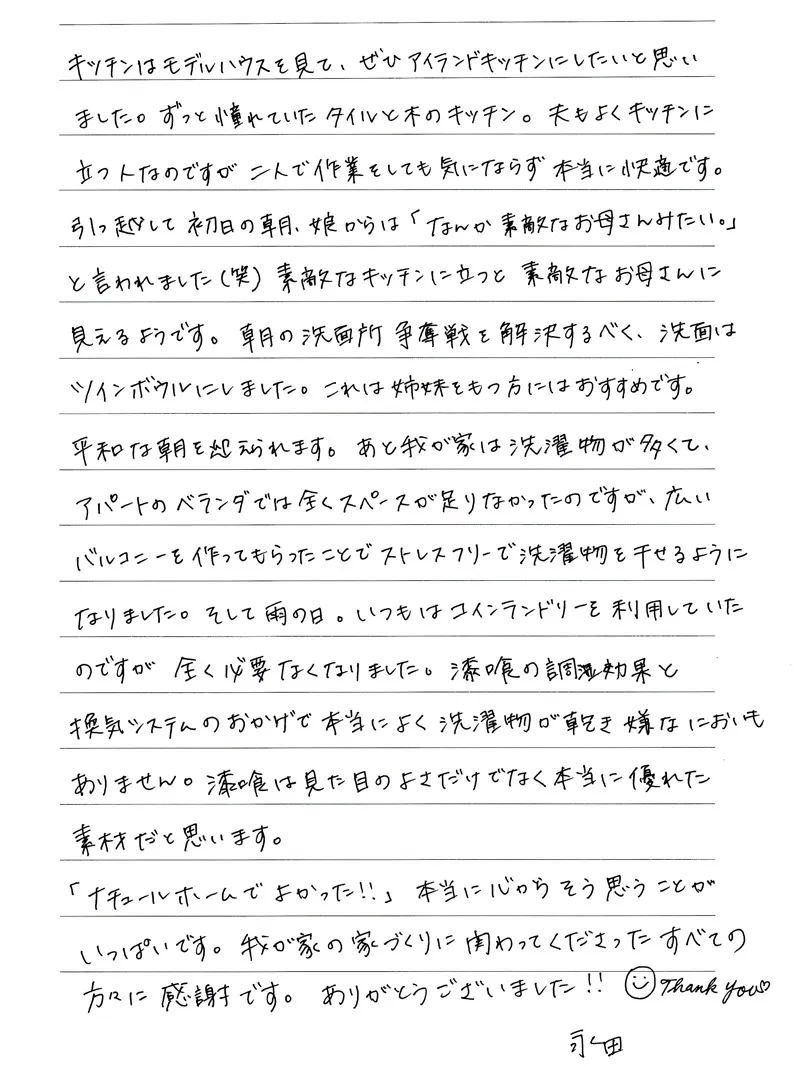 キッチンはモデルハウスを見て、ぜひアイランドキッチンにしたいと思い
ました。ずっと憧れていたタイルと木のキッチン。夫もよくキッチンに
立つ人なのですが二人で作業をしても気にならず本当に快適です。
引っ越して初日の朝、娘からは「なんか素敵なお母さんみたい。」
と言われました(笑)素敵なキッチンに立つと素敵なお母さんに
見えるようです。朝の洗面所争奪戦を解決するべく、洗面は
ツインボウルにしました。これは姉妹をもつ方にはおすすめです。
平和な朝を迎えられます。あと我が家は洗濯物が多くて、
アパートのベランダでは全くスペースが足りなかったのですが、広い
バルコニーを作ってもらったことでストレスフリーで洗濯物を干せるように
なりました。そして雨の日。いつもはコインランドリーを利用していた
のですが全く必要なくなりました。漆喰の調湿効果と
換気システムのおかげで本当によく洗濯物が乾き嫌なにおいも
ありません。漆喰は見た目のよさだけでなく本当に優れた
素材だと思います。
「ナチュールホームでよかった!!」本当に心からそう思うことが
いっぱいです。我が家の家づくりに関わってくださったすべての
方々に感謝です。ありがとうございました!! Thank you
永田